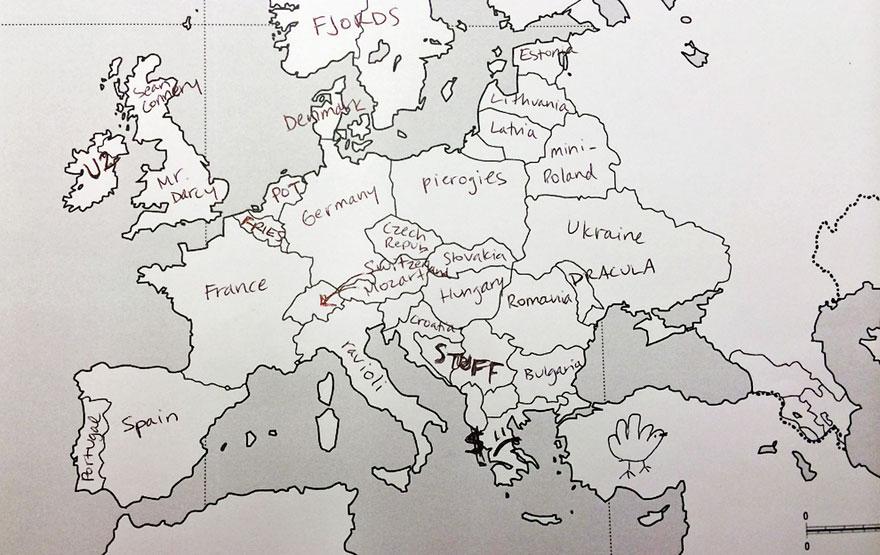 FJORDS
Estonia
Sean
Connery
Lithuania
Denmark
Latvia
U2
mini-
Poland
Mr.
Darcy
POT
Germany
pierogies
FRIES
Czech
Repub
Ukraine
Slovakia
France
Switzerland
Mozartland
DRACULA
Hungary
Romania
Croatia
STUFF
ravioli
Bulgaria
Spain
Portugal
$
0
0